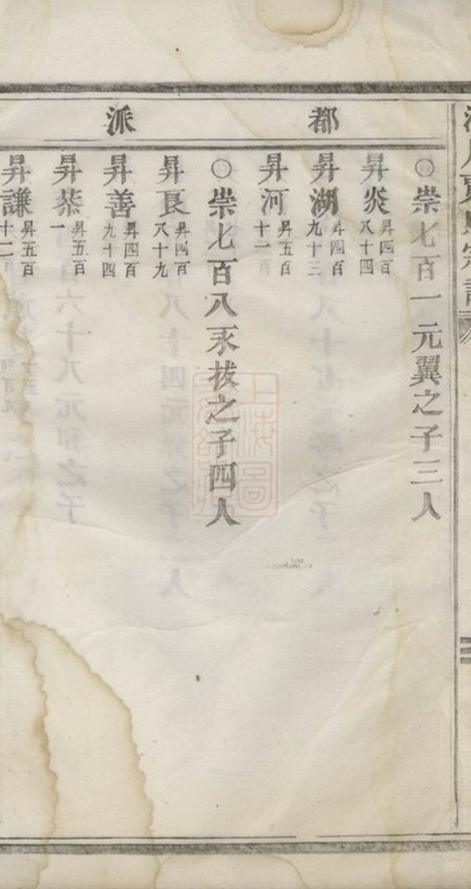 都派
○崇七百一元翼之子三人
昇炎 昇四百八十四
昇湖 昇四百九十三
昇河 昇五百十一
○崇七百八永拔之子四人
昇良 昇四百八十九
昇善 昇四百九十四
昇恭 昇五百一
昇謙 昇五百十二
上海圖